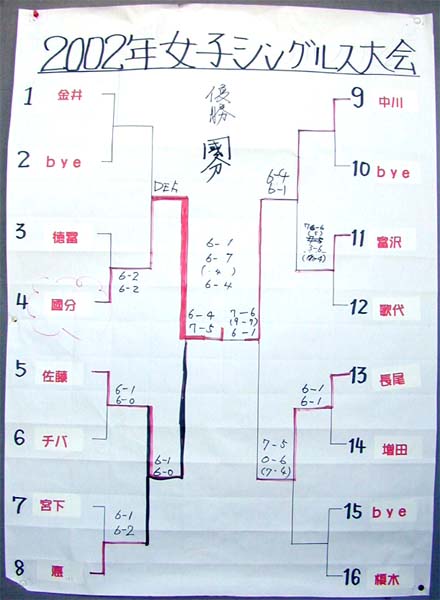 2002年女子シングルス大会
優勝
國分
1 金井
2 bye
3 徳冨
4 國分
5 佐藤
6 チバ
7 宮下
8 憲
DEF
6-2
6-2
6-1
6-0
6-1
6-2
6-1
6-0
6-4
7-5
6-1
6-7
(-4)
6-4
7-6
(9-7)
6-1
6-4
6-1
6-1
6-1
7-5
0-6
(7-4)
9 中川
10 bye
11 宮沢
12 歌代
13 長尾
14 増田
15 bye
16 榎木